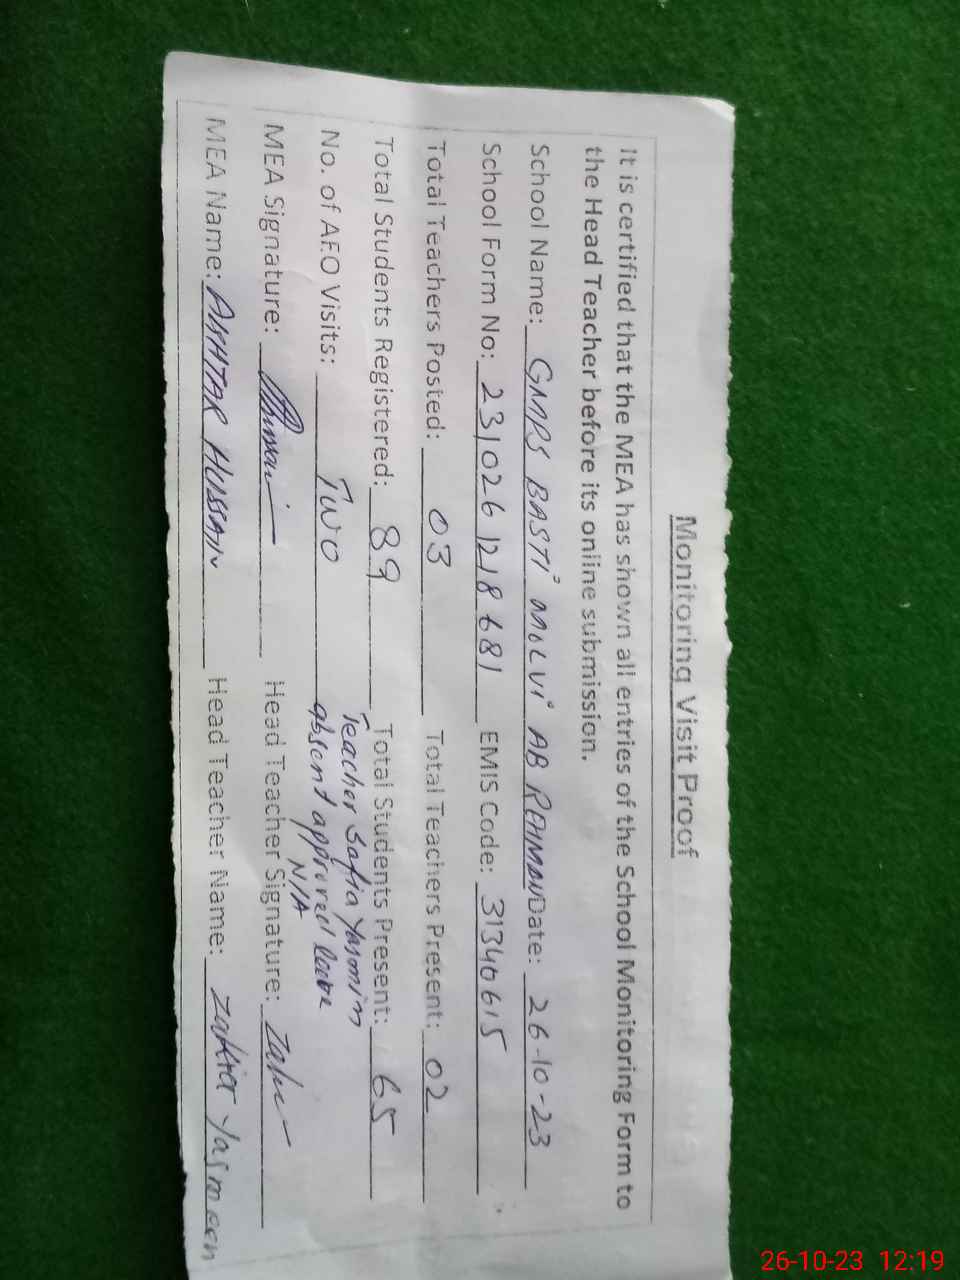 Monitoring Visit Proof
It is certified that the MEA has shown all entries of the School Monitoring Form to
the Head Teacher before its online submission.
School Name: GMPS BASTI MOLVI AB REHMAN Date: 26-10-23
School Form No: 2310261218681 EMIS Code: 31340615
Total Teachers Posted: 03 Total Teachers Present: 02
Total Students Registered: 89 Total Students Present: 65
No. of AEO Visits: Two Teacher Safia Yasmin
absent approved leave
N/A
MEA Signature: Head Teacher Signature:
MEA Name: AKHTAR HUSSAIN Head Teacher Name: Yasmeen
26-10-23 12:19